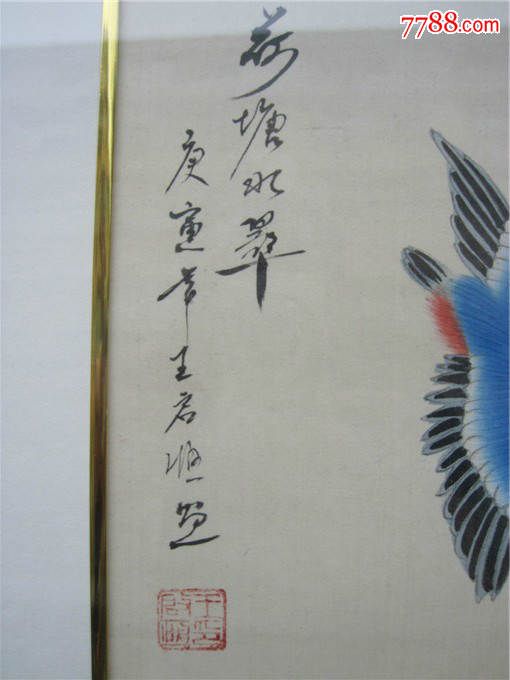 7788.com
荷塘水翠
庚寅年王启